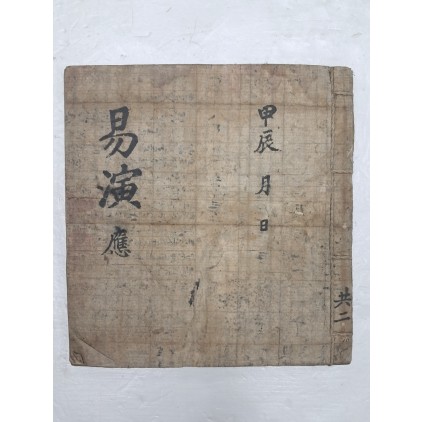 共二
甲辰 月 日
易演 應